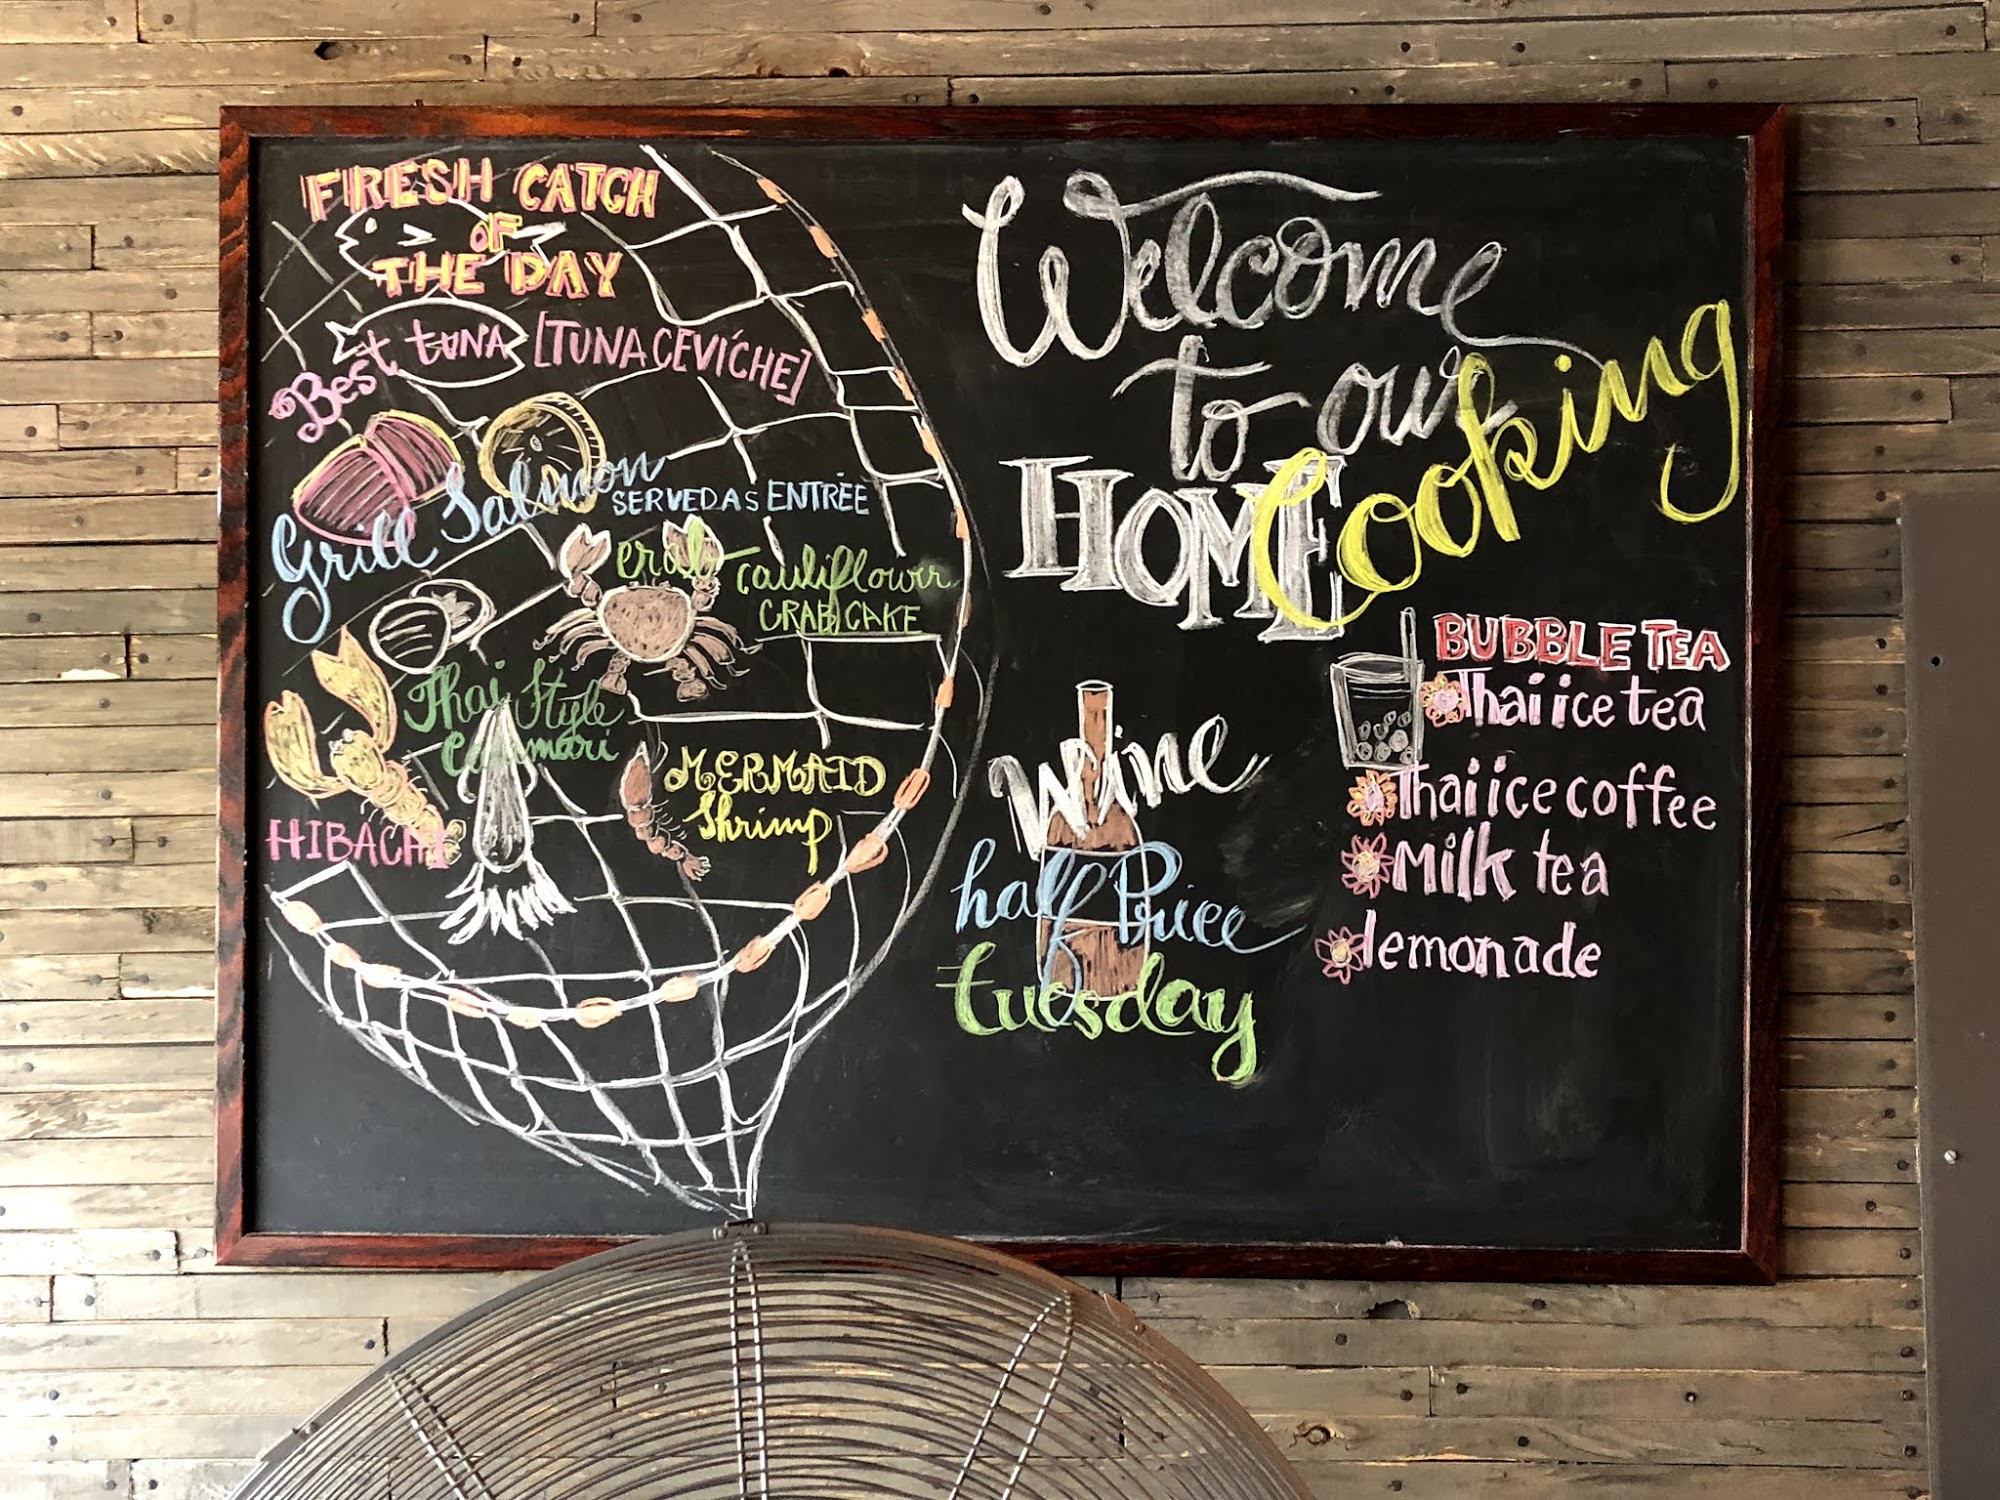 FRESH CATCH
OF
THE DAY
Best tuna [TUNA CEVÍCHE]
Grill Salmon SERVED AS ENTRÉE
crab cauliflower
CRAB CAKE
Thai Style
Calamari
MERMAID
Shrimp
HIBACHI
Welcome
to our
HOME Cooking
Wine
half Price
tuesday
BUBBLE TEA
Thai ice tea
Thai ice coffee
Milk tea
lemonade